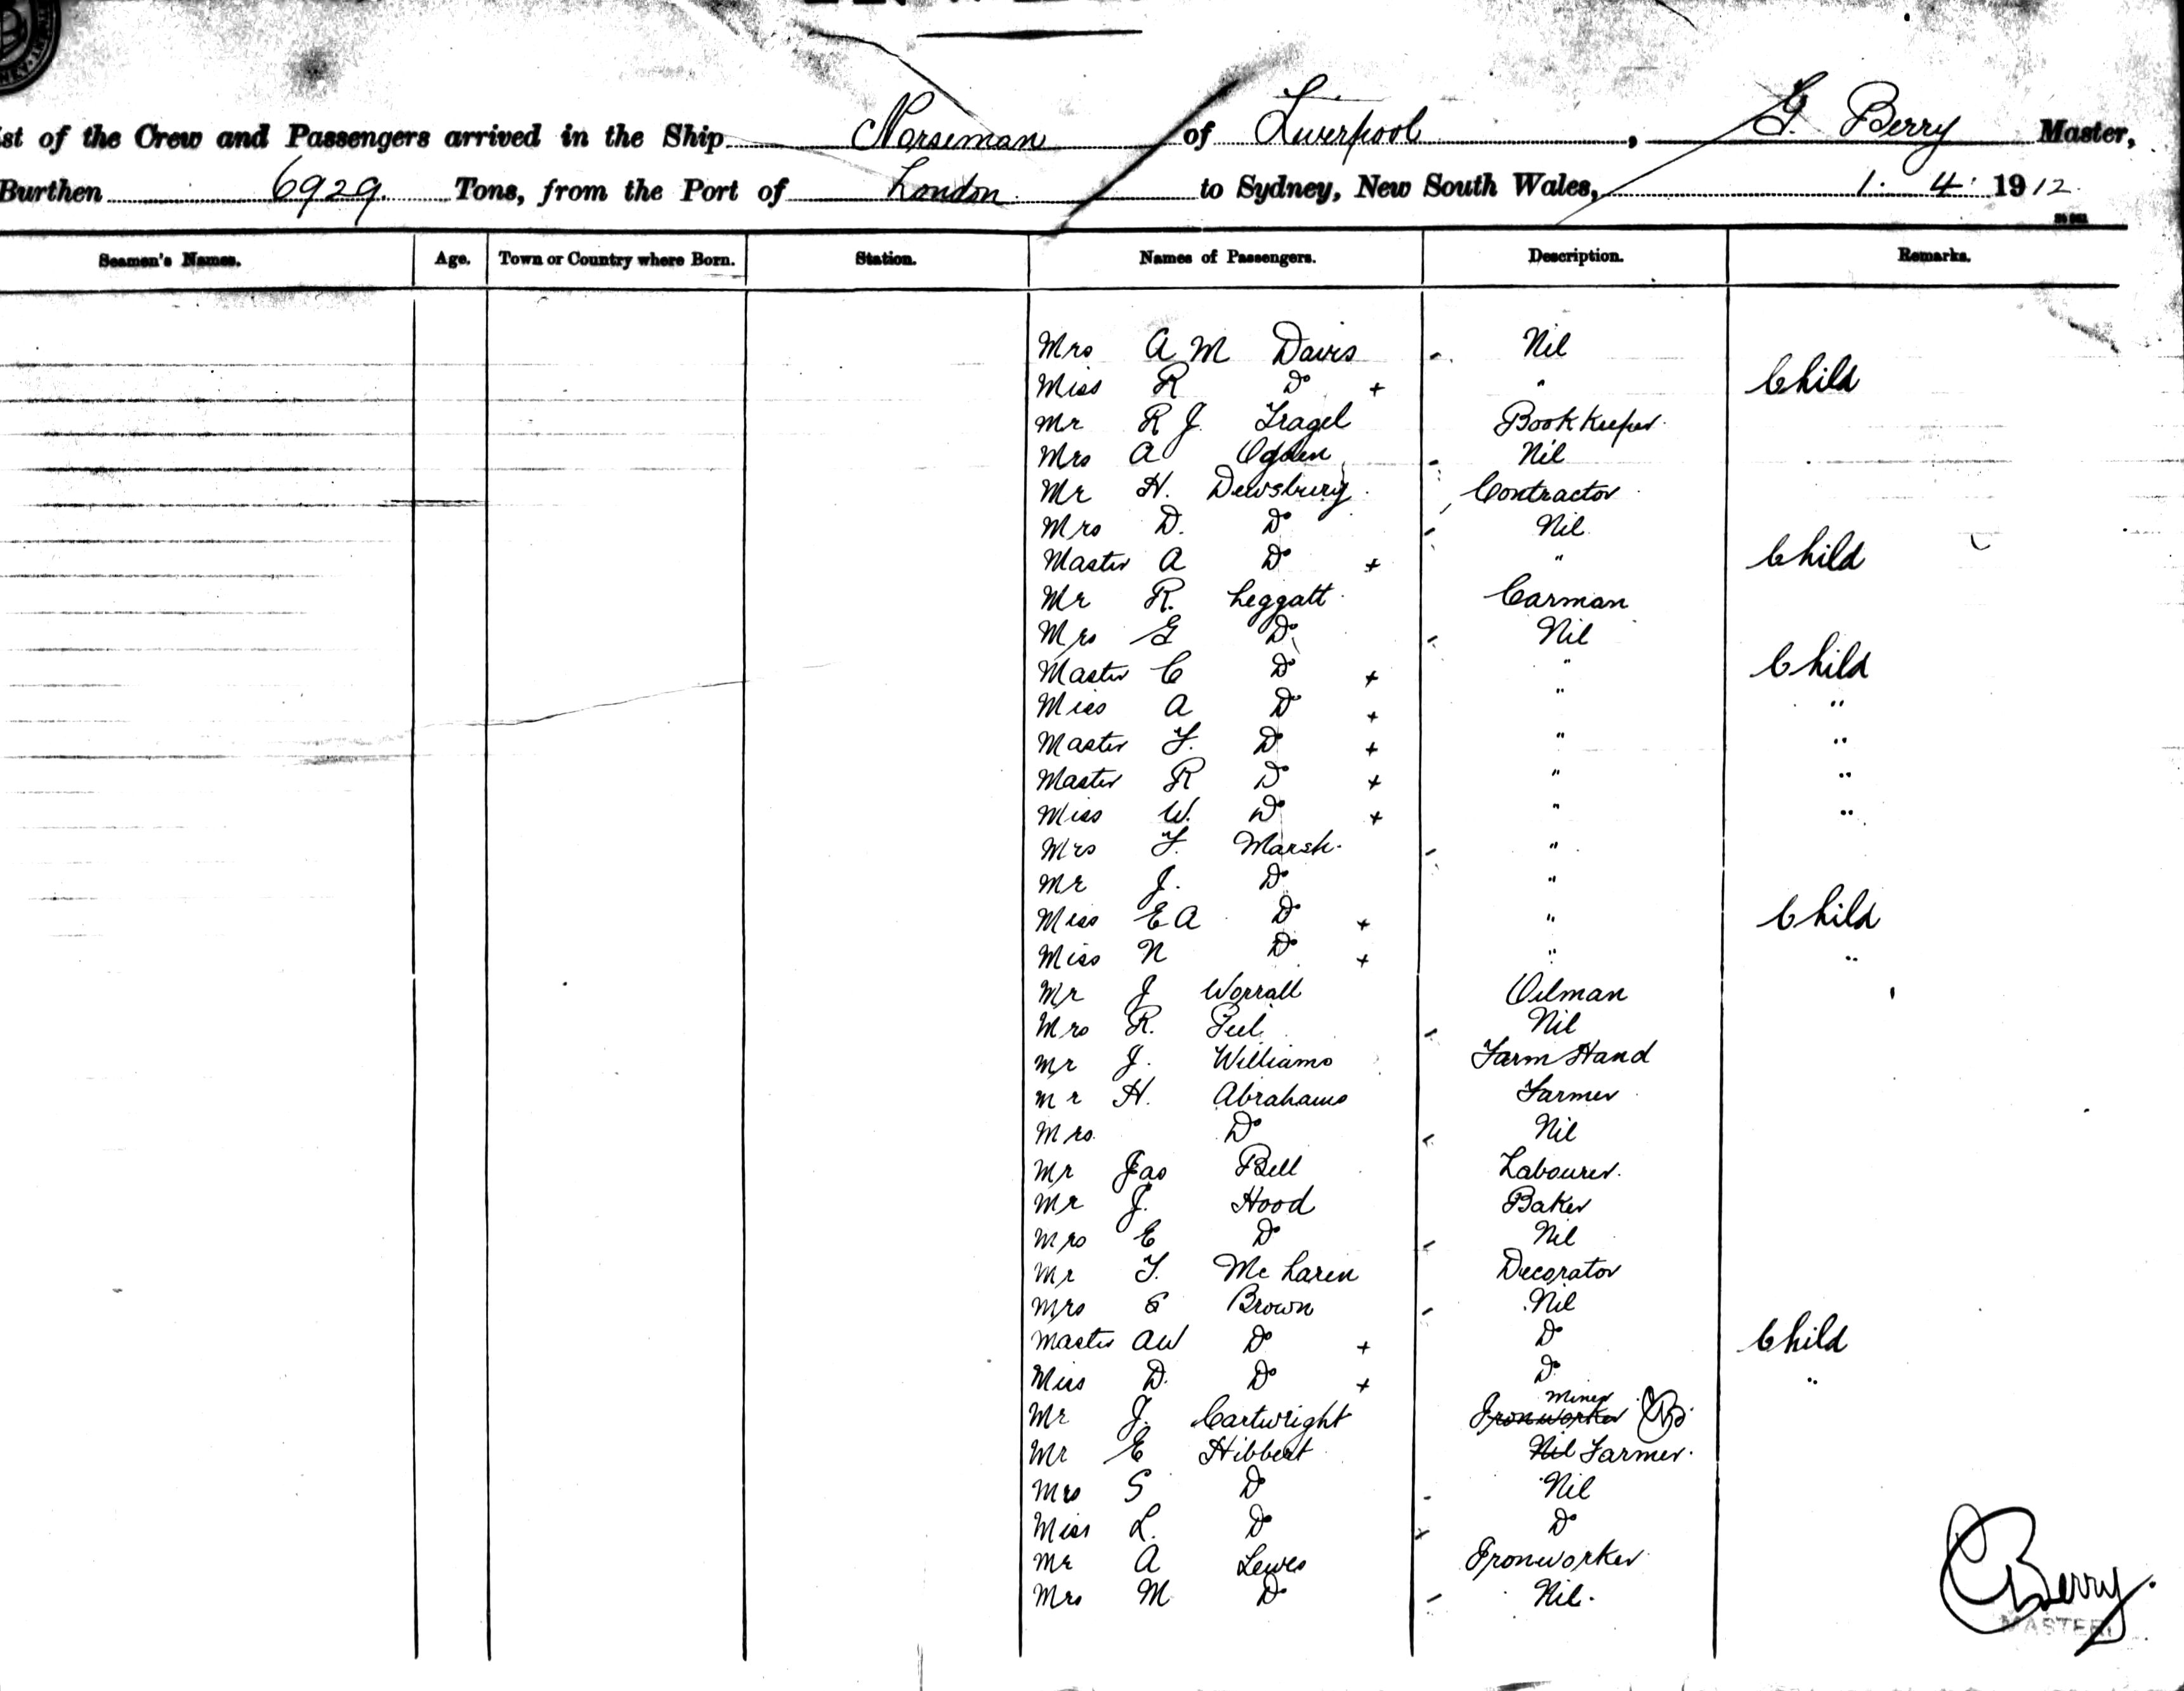 st of the Crew and Passengers arrived in the Ship Norseman of Liverpool, G. Berry Master,
Burthen 6929. Tons, from the Port of London to Sydney, New South Wales, 1. 4. 1912.
Seamen's Names. Age. Town or Country where Born. Station. Names of Passengers. Description. Remarks.
Mrs A M Davis Nil
Miss R Do + " Child
Mr R J. Book Keeper.
Mrs A Ogden Nil
Mr H. Dewsbury. Contractor
Mrs D. Do Nil
Master A Do + " Child
Mr R. Leggatt. Carman
Mrs G Do Nil
Master C Do + " Child
Miss A Do + " "
Master F. Do + " "
Master R Do + " "
Miss W. Do + " "
Mrs F. Marsh. "
Mr J. Do "
Miss E A Do + " Child
Miss N Do + " "
Mr J Worrall Oilman
Mrs R. Nil
Mr J. Williams Farm Hand
Mr H. Abrahams Farmer
Mrs. Do Nil
Mr Jas Bell Labourer.
Mr J. Hood Baker
Mrs E Do Nil
Mr T. Mc Laren Decorator
Mrs S Brown Nil
Master AW Do + Do Child
Miss D. Do + Do "
Miner
Mr J. Cartwright Ironworker
Mr E Hibbert Nil Farmer.
Mrs S Do Nil
Miss L. Do Do
Mr A Lewis Ironworker
Mrs M Do Nil.
Berry.
MASTER.